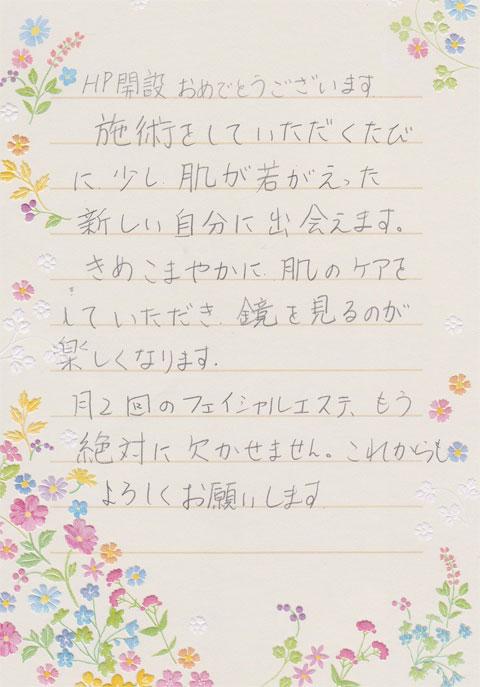 HP開設 おめでとうございます
施術をしていただくたび
に、少し、肌が若がえった
新しい自分に出会えます。
きめこまやかに、肌のケアを
していただき、鏡を見るのが
楽しくなります。
月2回のフェイシャルエステ、もう
絶対に欠かせません。これからも
よろしくお願いします。